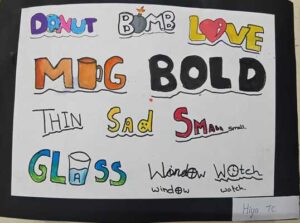 DONUT BOMB LOVE
MUG BOLD
THIN Sad SMALL small
GLASS Window Watch
window watch
Hiya 7C